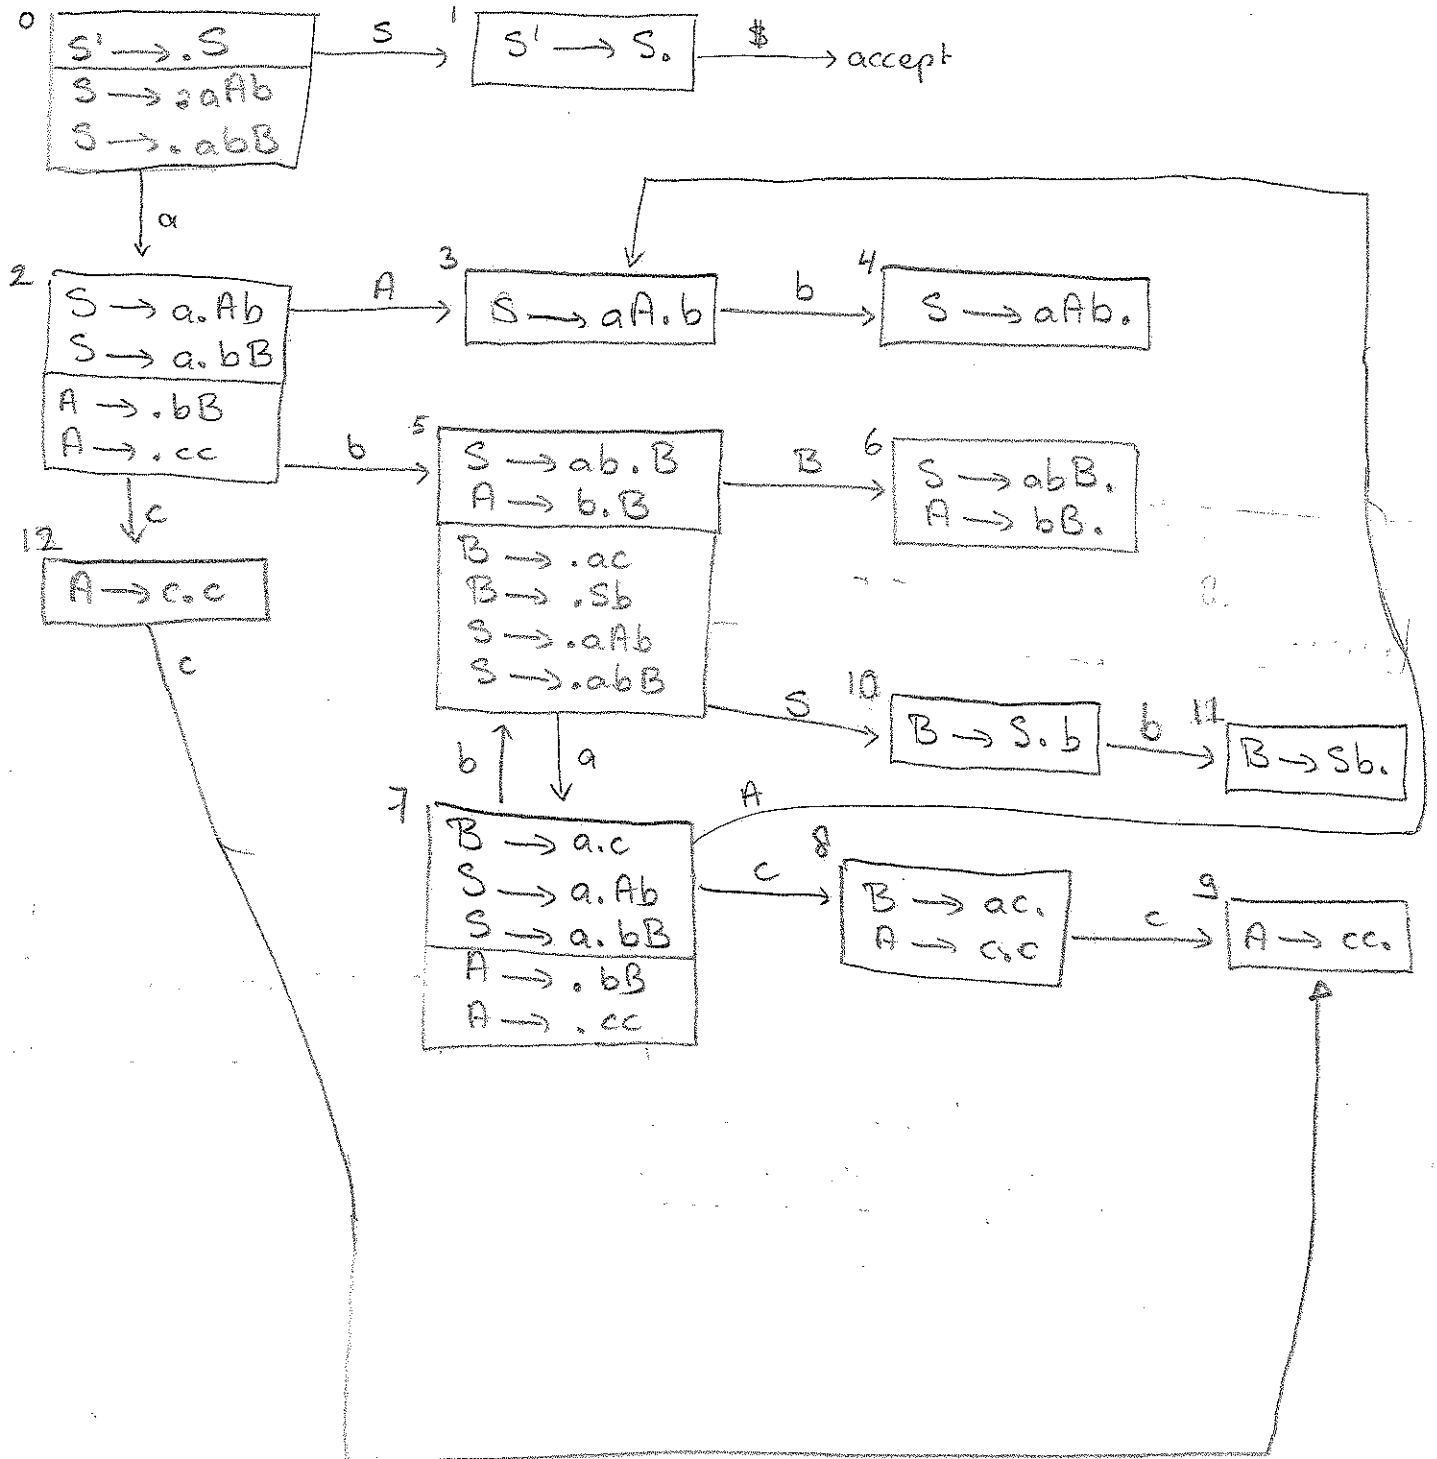 0
S' → .S
S → .aAb
S → .abB
S
1
S' → S.
$
accept
a
2
S → a.Ab
S → a.bB
A → .bB
A → .cc
A
3
S → aA.b
b
4
S → aAb.
b
5
S → ab.B
A → b.B
B → .ac
B → .Sb
S → .aAb
S → .abB
B
6
S → abB.
A → bB.
c
12
A → c.c
c
S
10
B → S.b
b
11
B → Sb.
b
a
7
B → a.c
S → a.Ab
S → a.bB
A → .bB
A → .cc
A
c
8
B → ac.
A → c.c
c
9
A → cc.